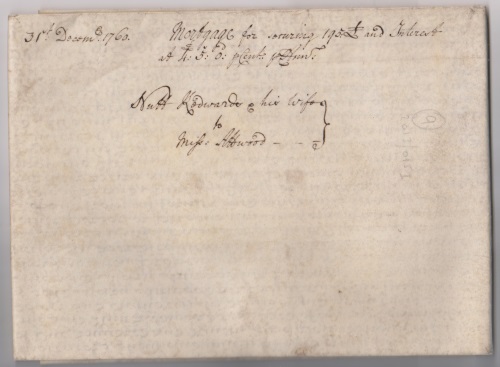 31st Decemr. 1760. Mortgage for securing 195£ and Interest
at 4: 5: 0: p Cent: p Ann:
Nutt Kedwards & his Wife
to
Misse Attwood
6